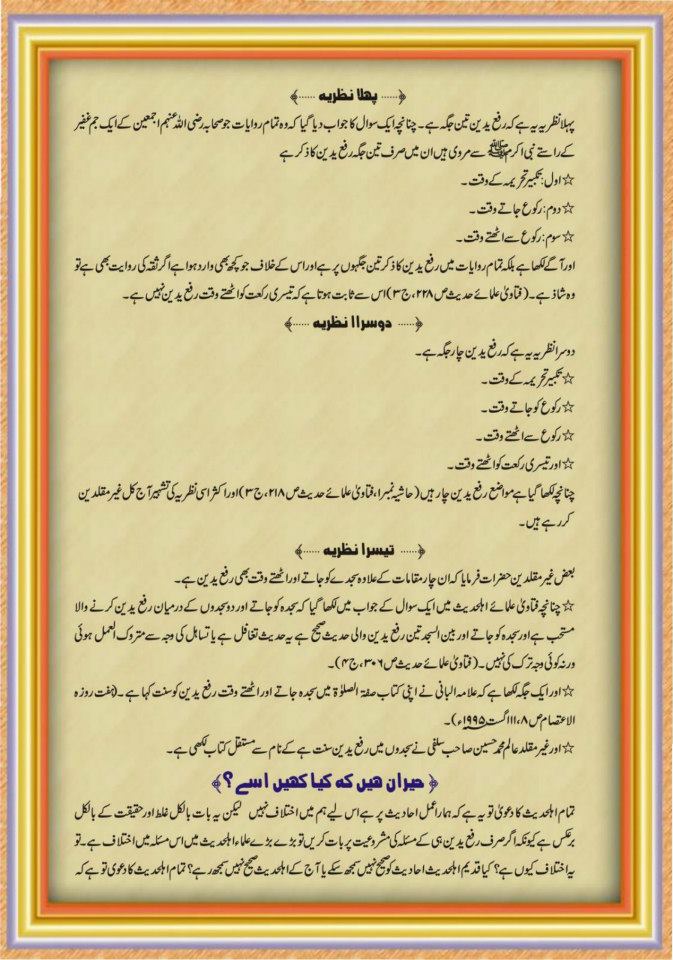 ﴿...... پہلا نظریہ ......﴾
پہلا نظریہ یہ ہے کہ رفع یدین تین جگہ ہے۔ چنانچہ ایک سوال کا جواب دیا گیا کہ وہ تمام روایات جو صحابہ رضی اللہ عنہم اجمعین کے ایک جم غفیر
کے راستے نبی اکرم ﷺ سے مروی ہیں ان میں صرف تین جگہ رفع یدین کا ذکر ہے
☆ اول: تکبیر تحریمہ کے وقت۔
☆ دوم: رکوع جاتے وقت۔
☆ سوم: رکوع سے اٹھتے وقت۔
اور آگے لکھا ہے بلکہ تمام روایات میں رفع یدین کا ذکر تین جگہوں پر ہے اور اس کے خلاف جو کچھ بھی وارد ہوا ہے اگر ثقہ کی روایت بھی ہے تو
وہ شاذ ہے۔ (فتاویٰ علمائے حدیث ص ۲۲۸، ج ۳) اس سے ثابت ہوتا ہے کہ تیسری رکعت کو اٹھتے وقت رفع یدین نہیں ہے۔
﴿...... دوسراا نظریہ ......﴾
دوسرا نظریہ یہ ہے کہ رفع یدین چار جگہ ہے۔
☆ تکبیر تحریمہ کے وقت۔
☆ رکوع کو جاتے وقت۔
☆ رکوع سے اٹھتے وقت۔
☆ اور تیسری رکعت کو اٹھتے وقت۔
چنانچہ لکھا گیا ہے مواضع رفع یدین چار ہیں (حاشیہ نمبر ۱، فتاویٰ علمائے حدیث ص ۲۱۸، ج ۳) اور اکثر اسی نظریہ کی تشہیر آج کل غیر مقلدین
کر رہے ہیں۔
﴿...... تیسرا نظریہ ......﴾
بعض غیر مقلدین حضرات فرمایا کہ ان چار مقامات کے علاوہ سجدے کو جاتے اور اٹھتے وقت بھی رفع یدین ہے۔
☆ چنانچہ فتاویٰ علمائے اہلحدیث میں ایک سوال کے جواب میں لکھا گیا کہ سجدہ کو جاتے اور دو سجدوں کے درمیان رفع یدین کرنے والا
مستحب ہے اور سجدہ کو جاتے اور بین السجدتین رفع یدین والی حدیث صحیح ہے یہ حدیث تغافل ہے یا تساہل کی وجہ سے متروک العمل ہوئی
ورنہ کوئی وجہ ترک کی نہیں۔ (فتاویٰ علمائے حدیث ص ۳۰۶، ج ۴)۔
☆ اور ایک جگہ لکھا ہے کہ علامہ البانی نے اپنی کتاب صفۃ الصلوٰۃ میں سجدہ جاتے اور اٹھتے وقت رفع یدین کو سنت کہا ہے۔ (ہفت روزہ
الاعتصام ص ۸، ۱۱ اگست ۱۹۹۵ء)۔
☆ اور غیر مقلد عالم محمد حسین صاحب سلفی نے سجدوں میں رفع یدین سنت ہے کے نام سے مستقل کتاب لکھی ہے۔
﴿ حیران ہیں کہ کیا کہیں اسے؟ ﴾
تمام اہلحدیث کا دعویٰ تو یہ ہے کہ ہمارا عمل احادیث پر ہے اس لیے ہم میں اختلاف نہیں لیکن یہ بات بالکل غلط اور حقیقت کے بالکل
برعکس ہے کیونکہ اگر صرف رفع یدین ہی کے مسئلہ کی مشروعیت پر بات کریں تو بڑے بڑے علماء اہلحدیث میں اس مسئلہ میں اختلاف ہے۔ تو
یہ اختلاف کیوں ہے؟ کیا قدیم اہلحدیث احادیث کو صحیح نہیں سمجھ سکے یا آج کے اہلحدیث صحیح نہیں سمجھ رہے؟ تمام اہلحدیث کا دعویٰ تو ہے کہ